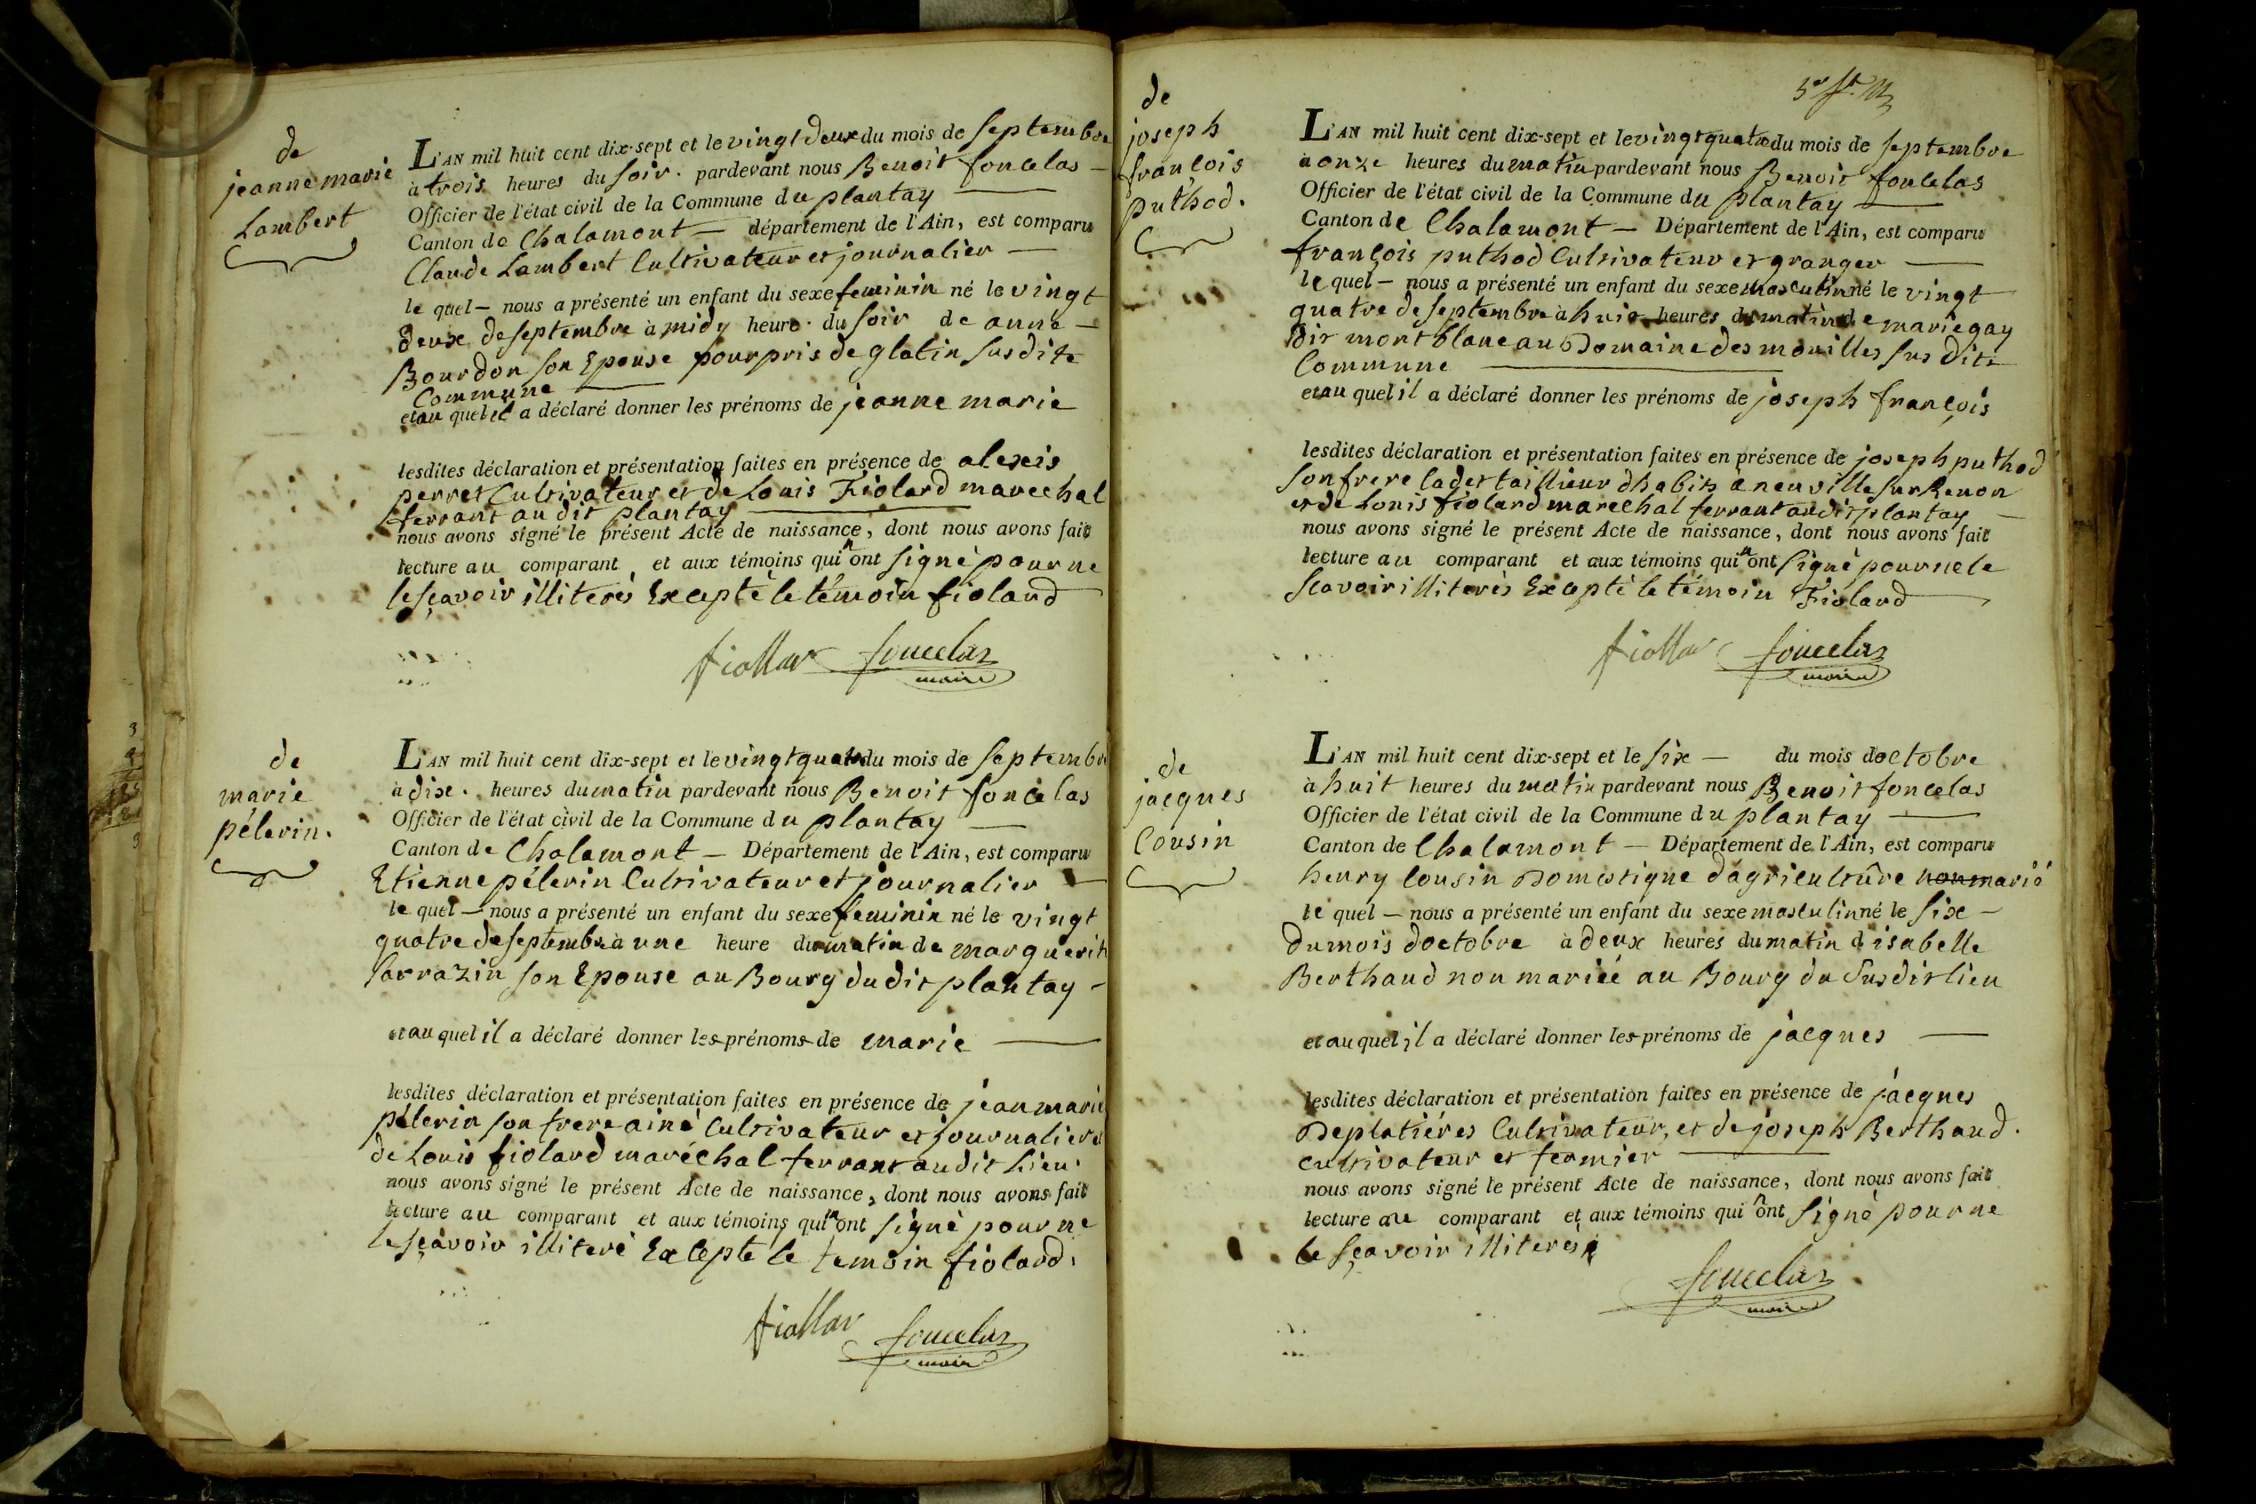 de
jeanne marie
Lambert
L'AN mil huit cent dix-sept et le vingt deux du mois de septembre
à trois heures du soir. pardevant nous Benoit foncelas —
Officier de l'état civil de la Commune du plantay —
Canton de Chalamont — département de l'Ain, est comparu
Claude Lambert Cultivateur et journalier —
le quel — nous a présenté un enfant du sexe feminin né le vingt
deux de septembre à midy heure du soir de anne —
Bourdon son Epouse pourpris de glatin susdite
Commune —
et au quel il a déclaré donner les prénoms de jeanne marie
lesdites déclaration et présentation faites en présence de alexis
perret Cultivateur et de Louis Fiolard marechal
ferrant au dit plantay —
nous avons signé le présent Acte de naissance, dont nous avons fait
lecture au comparant et aux témoins qui n'ont signé pour ne
le sçavoir illiterés Excepté le témoin fiolard
fiollar foucelas
maire
de
marie
pélerin.
L'AN mil huit cent dix-sept et le vingt quatre du mois de septembre
à dix. heures du matin pardevant nous Benoit foncelas
Officier de l'état civil de la Commune du plantay —
Canton de Chalamont — Département de l'Ain, est comparu
Etienne pélerin Cultivateur et journalier —
le quel — nous a présenté un enfant du sexe feminin né le vingt
quatre de septembre à une heure du matin de marguerite
sarrazin son Epouse au Bourg du dit plantay —
et au quel il a déclaré donner les prénoms de marie —
lesdites déclaration et présentation faites en présence de jean marie
pélerin son frere ainé Cultivateur et journalier et
de Louis fiolard maréchal ferrant au dit Lieu.
nous avons signé le présent Acte de naissance, dont nous avons fait
lecture au comparant et aux témoins qui n'ont signé pour ne
le sçavoir illiteré Excepté le temoin fiolard.
fiollar foucelas
maire
de
joseph
françois
puthod.
L'AN mil huit cent dix-sept et le vingt quatre du mois de septembre
à onze heures du matin pardevant nous Benoit foncelas
Officier de l'état civil de la Commune du plantay —
Canton de Chalamont — Département de l'Ain, est comparu
françois puthod Cultivateur et granger —
le quel — nous a présenté un enfant du sexe masculin né le vingt
quatre de septembre à huit heures du matin de marie gay
dit montblanc au Domaine des mouilles sus dite
Commune —
et au quel il a déclaré donner les prénoms de joseph françois
lesdites déclaration et présentation faites en présence de joseph puthod
son frere cadet taillieur dhabits à neuville sur Renon
et de Louis fiolard marechal ferrant au dit plantay —
nous avons signé le présent Acte de naissance, dont nous avons fait
lecture au comparant et aux témoins qui n'ont signé pour ne le
scavoir illiterés Excepté le témoin Fiolard —
fiollar foucelas
maire
de
jacques
Cousin
L'AN mil huit cent dix-sept et le six — du mois doctobre
à huit heures du matin pardevant nous Benoit foncelas
Officier de l'état civil de la Commune du plantay —
Canton de Chalamont — Département de l'Ain, est comparu
henry Cousin Domestique dágriculture non marié
le quel — nous a présenté un enfant du sexe masculin né le six —
du mois doctobre à deux heures du matin d isabelle
Berthaud non mariée au Bourg du susdit lieu
et au quel il a déclaré donner les prénoms de jacques —
lesdites déclaration et présentation faites en présence de jacques
Deplatiéres Cultivateur, et de joseph Berthaud.
cultivateur et fermier —
nous avons signé le présent Acte de naissance, dont nous avons fait
lecture au comparant et aux témoins qui n'ont signé pour ne
le sçavoir illiterés
foucelas
maire